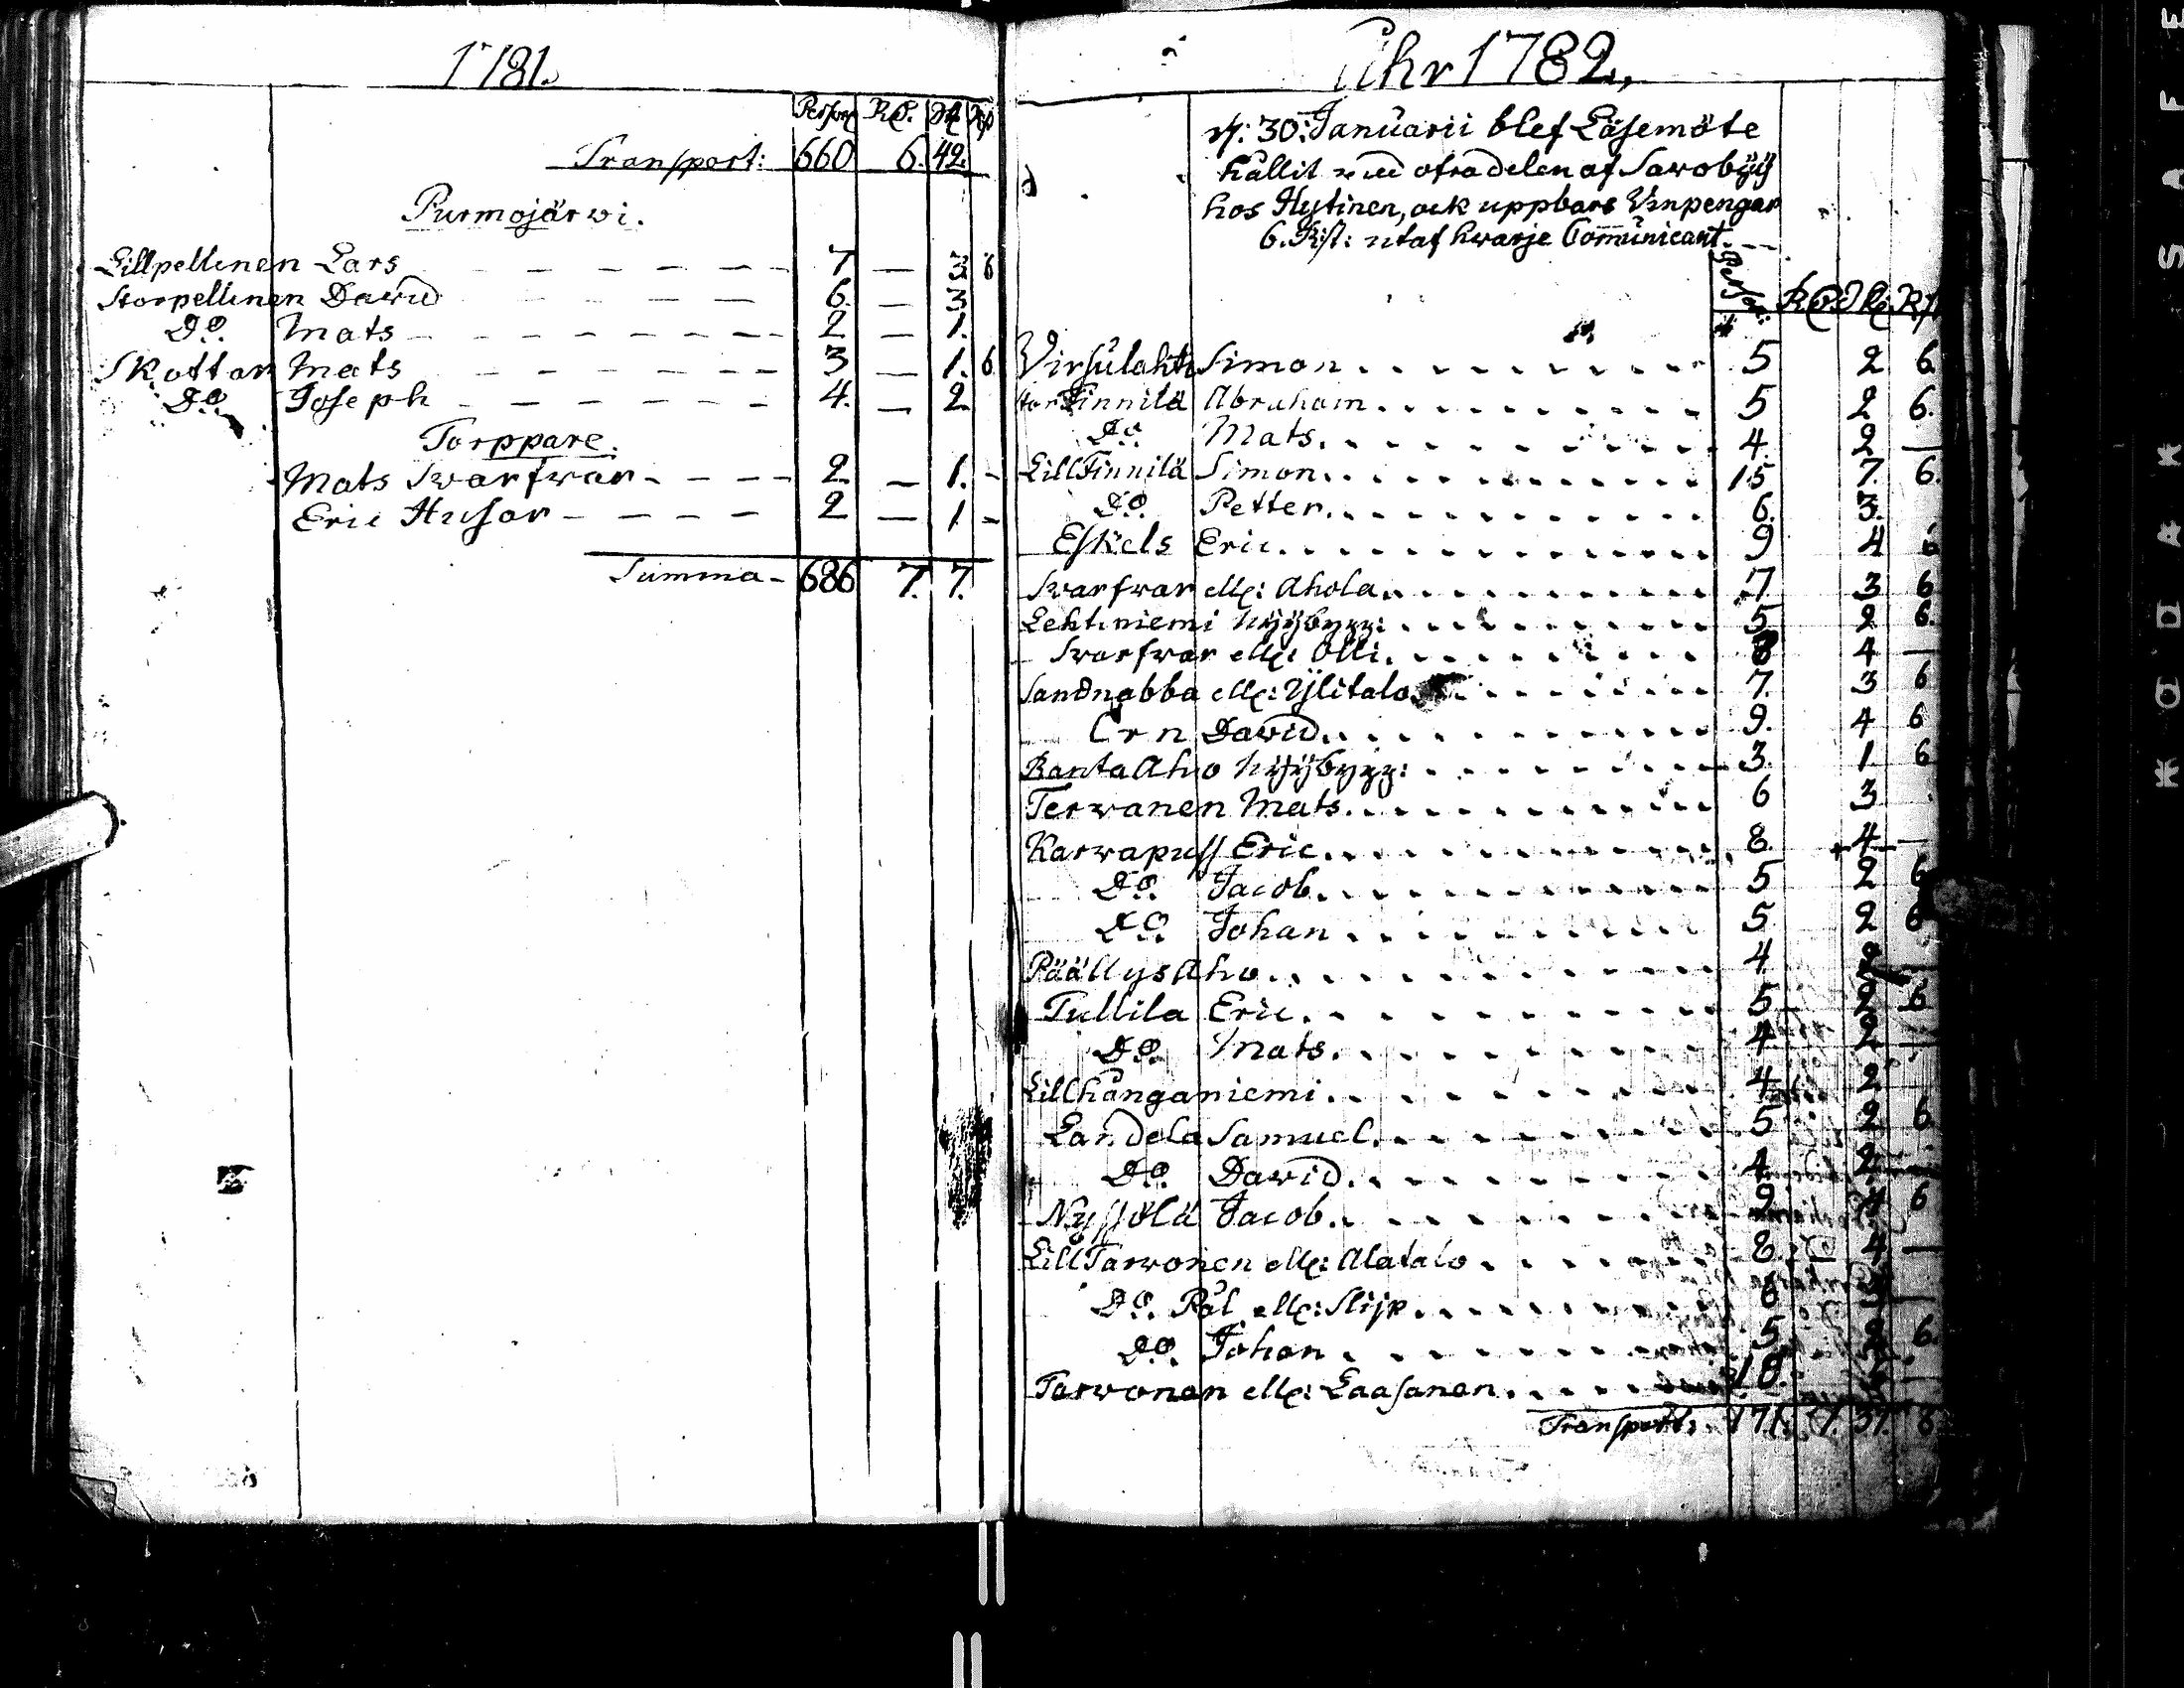 1781.
Person RD. Dl. Kp
Transport: 660 6. 42.
Purmojärwi.
Lillpellinen Lars 7 — 3 6
Storpellinen David 6. — 3
Do. Mats 2 — 1.
Skottar Mats 3 — 1. 6
Do. Joseph 4. — 2
Torppare.
Mats Swarfwar 2 — 1. -
Eric Husar 2 — 1 -
Summa 686 7. 7.
Åhr 1782.
d: 30: Januarii blef Läsemöte
hållit med öfradelen af Sawobÿÿ
hos Hytinen, ock uppbars Vinpengar
6. Rst: utaf hwarje Communicant.
Person: RD. Dl. Rst
Virsulahti Simon 5 2 6
Stor Finnilä Abraham 5 2 6.
Do. Mats. 4. 2 —
Lill Finnilä Simon 15 7. 6.
Do. Petter 6. 3.
Eskels Eric 9 4 6
Swarfwar ell: Ahola 7 3 6
Lehtiniemi nÿÿbygg: 5 2 6.
Swarfwar ell: Olli. 8 4 —
Sandnabba ell: Ÿlitalo 7. 3 6
Crn David 9. 4 6
Ranta Aho nÿÿbygg: 3. 1 6
Terwanen Mats. 6 3
Karwapuss Eric. 8. 4 —
Do. Jacob. 5 2 6
Do. Johan 5 2 6
Päällys Aho. 4 2 —
Tullila Eric. 5 2 6
Do. Mats. 4. 2 —
Lillhånganiemi. 4 2
Landela Samuel. 5 2 6.
Do. David. 4. 2. —
Nyssölä Jacob. 9 4 6
Lill Tarwonen ell: Alatalo 8. 4 —
Do. Pål ell: Slijp. 6 3 —
Do. Johan 5 2 6.
Tarwonen ell: Laasanen. 10.
Transport: 171.